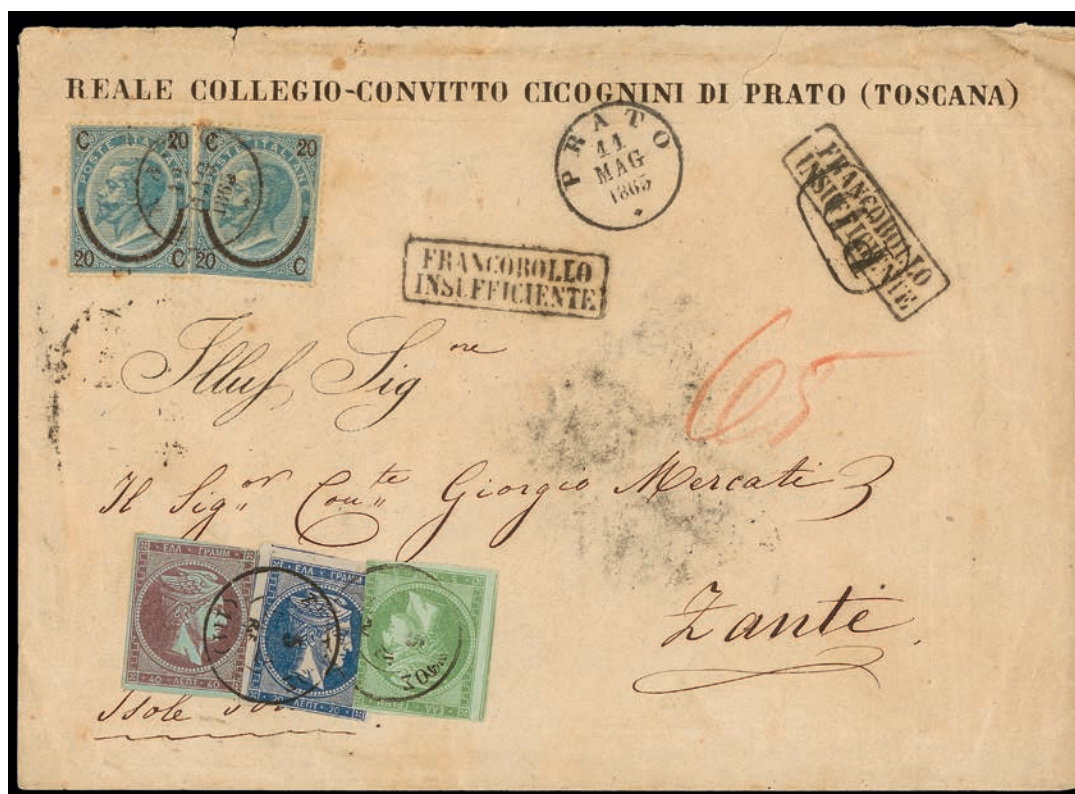 REALE COLLEGIO-CONVITTO CICOGNINI DI PRATO (TOSCANA)
C 20
POSTE ITALIANE
20 C
C 20
POSTE ITALIANE
20 C
1865
PRATO
11
MAG
1865
FRANCOBOLLO
INSUFFICIENTE
FRANCOBOLLO
INSUFFICIENTE
65
Illus Sig.re
Il Sig.or Con.te Giorgio Mercati
Zante
ΕΛΛ ΓΡΑΜΜ
40 ΛΕΠΤ 40
ΕΛΛ ΓΡΑΜΜ
20 ΛΕΠΤ 20
ΕΛΛ
Isole